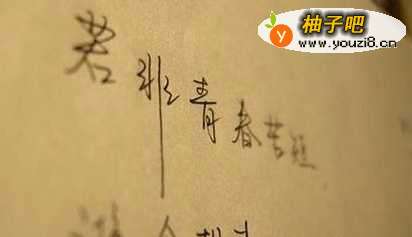 柚子吧
www.youzi8.cn
若非青春苦短